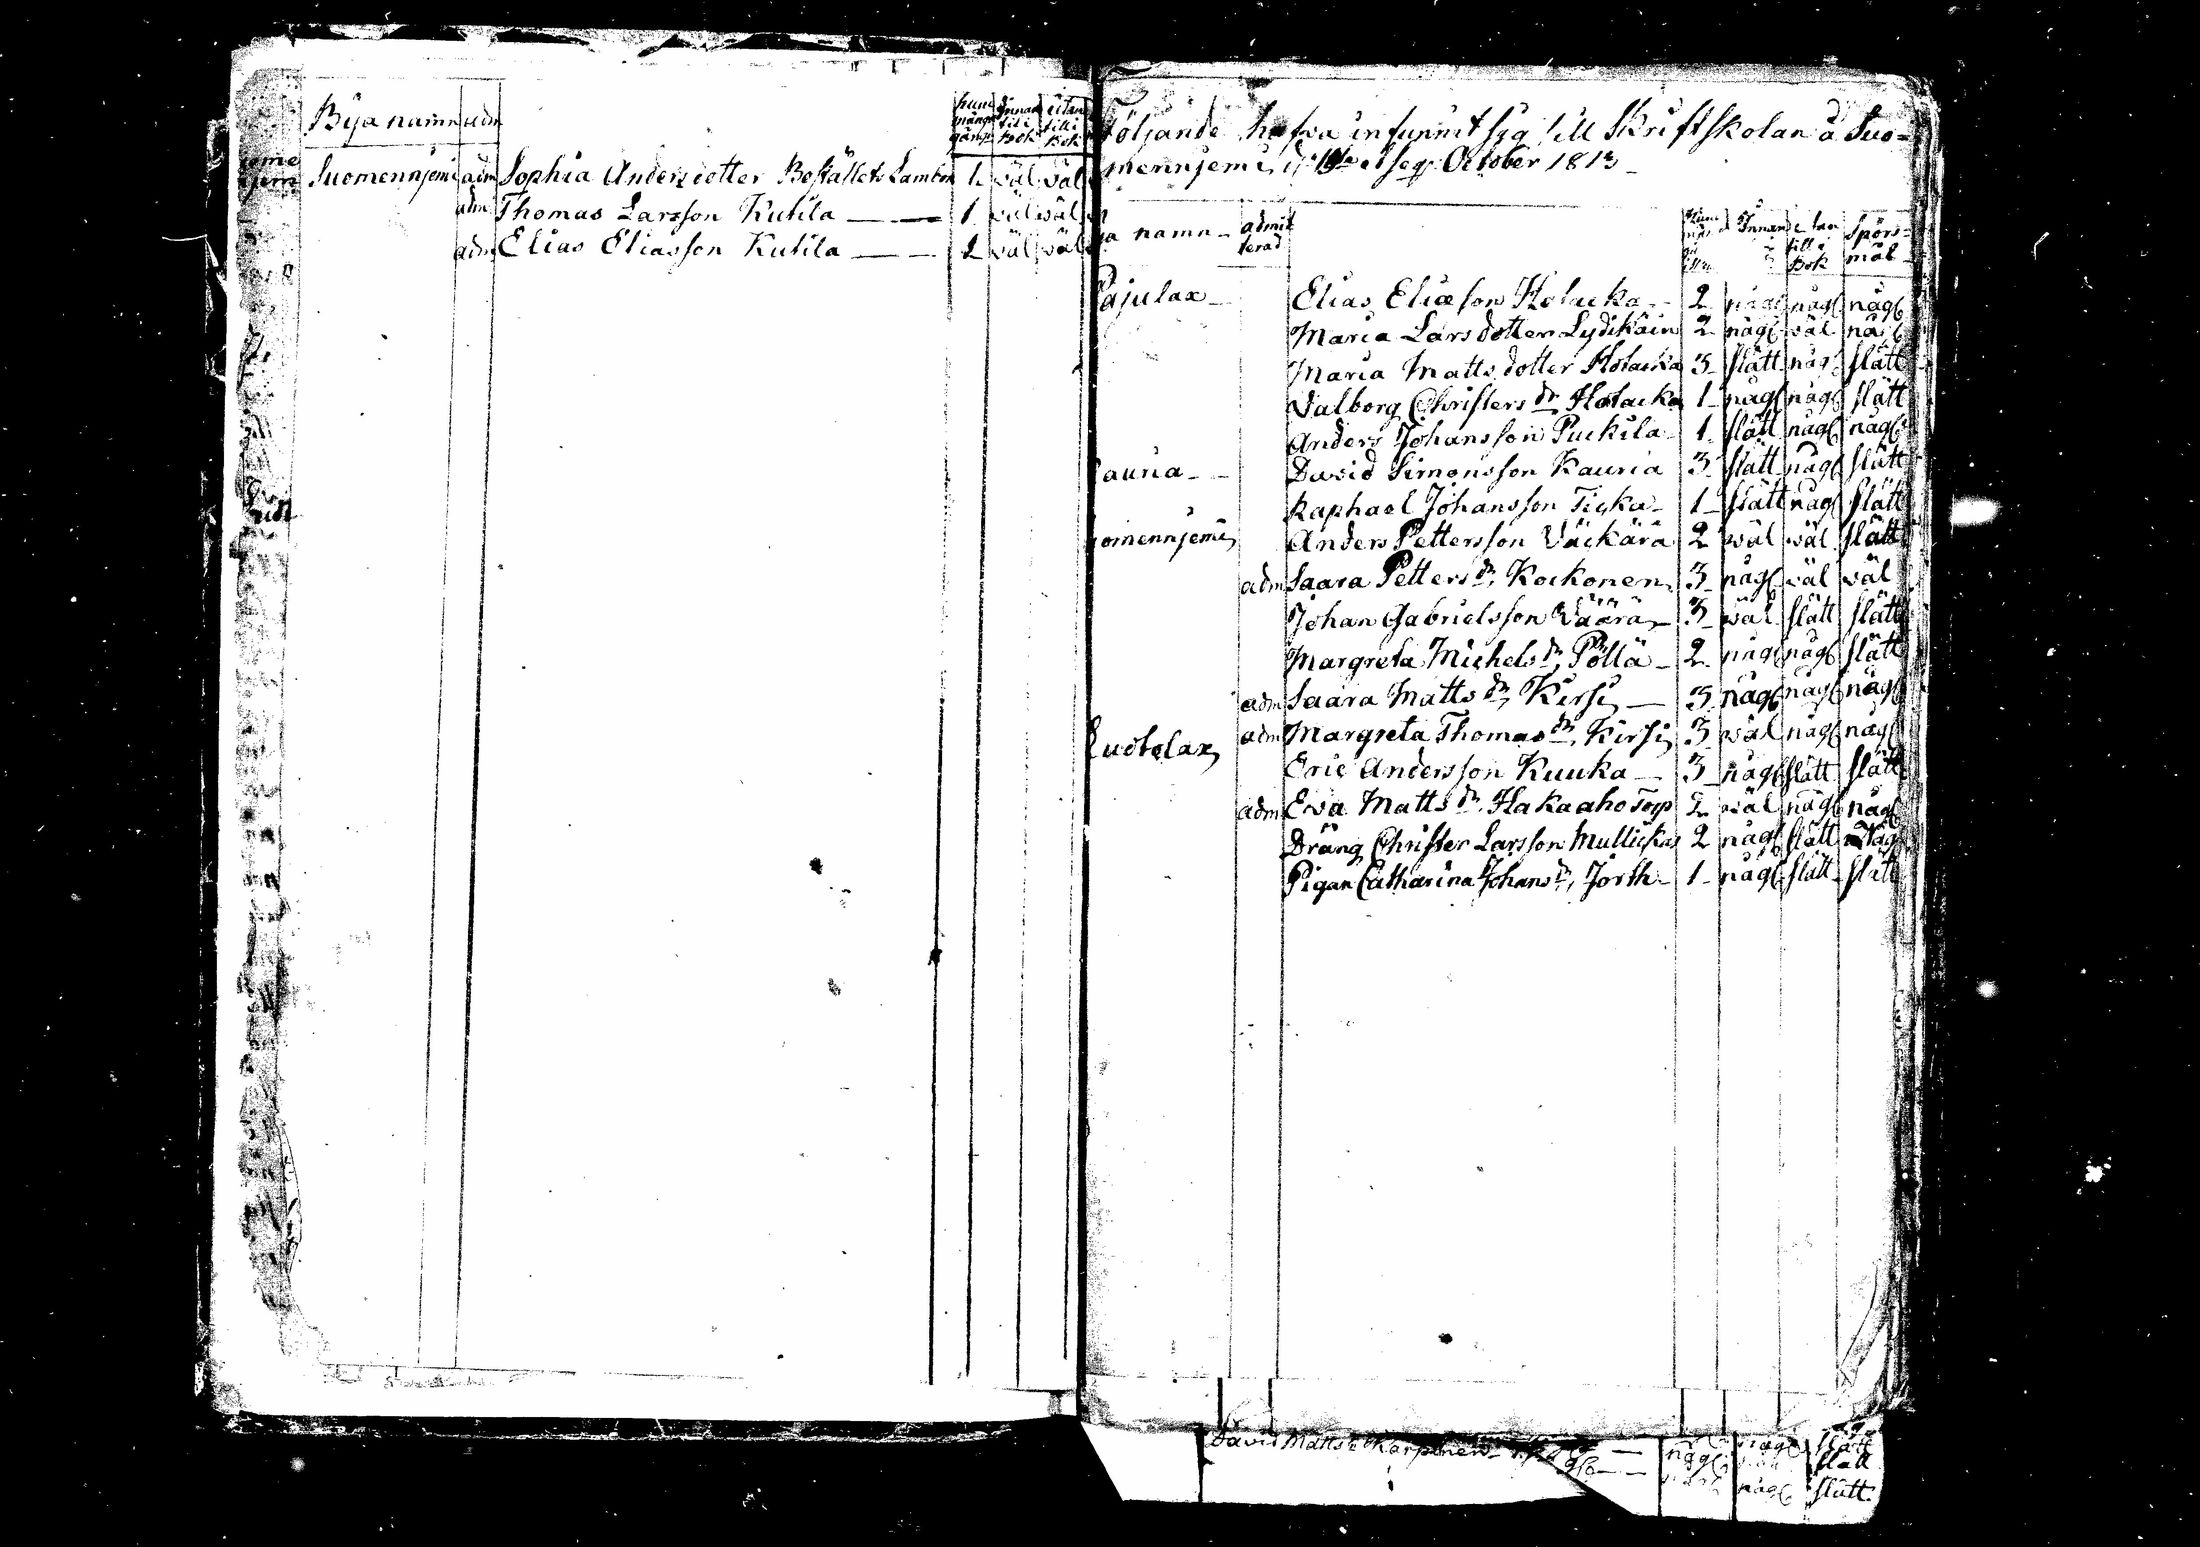 Bya namn adm
huru mången gång Innan till i Bok utan till i Bok
Suomennjemi adm Sophia Andersdotter Boställets Lamb 1. väl väl
adm Thomas Larsson Kukila 1 väl väl
adm Elias Eliasson Kukila 2 väl väl
Följande hafva infunnit sig till Skriftskolan å Suo=
mennjemi d: et seq: October 1813
namn admit terad Innan utan till i Bok Spörs= mål
Pajulax Elias Eliasson Holacka 2 någ: någ: någ:
Maria Larsdotter Lydikäin 2 någ: väl någ:
Maria Mattsdotter Holacka 3 slätt någ: slätt
Valborg Christersdr Holacka 1 någ: någ: slätt
Anders Johansson Puckila 1 slätt någ: någ:
auria David Simonsson Kauria 3 slätt någ: slätt
Raphael Johansson Ticka 1 slätt någ: slätt
omennjemi Anders Pettersson Väckärä 2 väl väl slätt
adm Saara Pettersdr Kockonen 3 någ: väl väl
Johan Gabrielsson Väärä 3 väl slätt slätt
Margreta Michelsdr Pöllä 2 någ: någ: slätt
adm Saara Mattsdr Kirsi 3 någ: någ: någ:
Luotolax adm Margreta Thomasdr Kirsi 3 väl någ: någ:
Eric Andersson Kuuka 3 någ: slätt slätt
adm Eva Mattsdr Hakaaho Torp 2 väl någ: någ:
Dräng Christer Larsson Mullickas 2 någ: slätt någ:
Pigan Catharina Johansdr Jorth 1 någ: slätt slätt
David Matts: Karpinen någ: slätt
slätt
någ: slätt